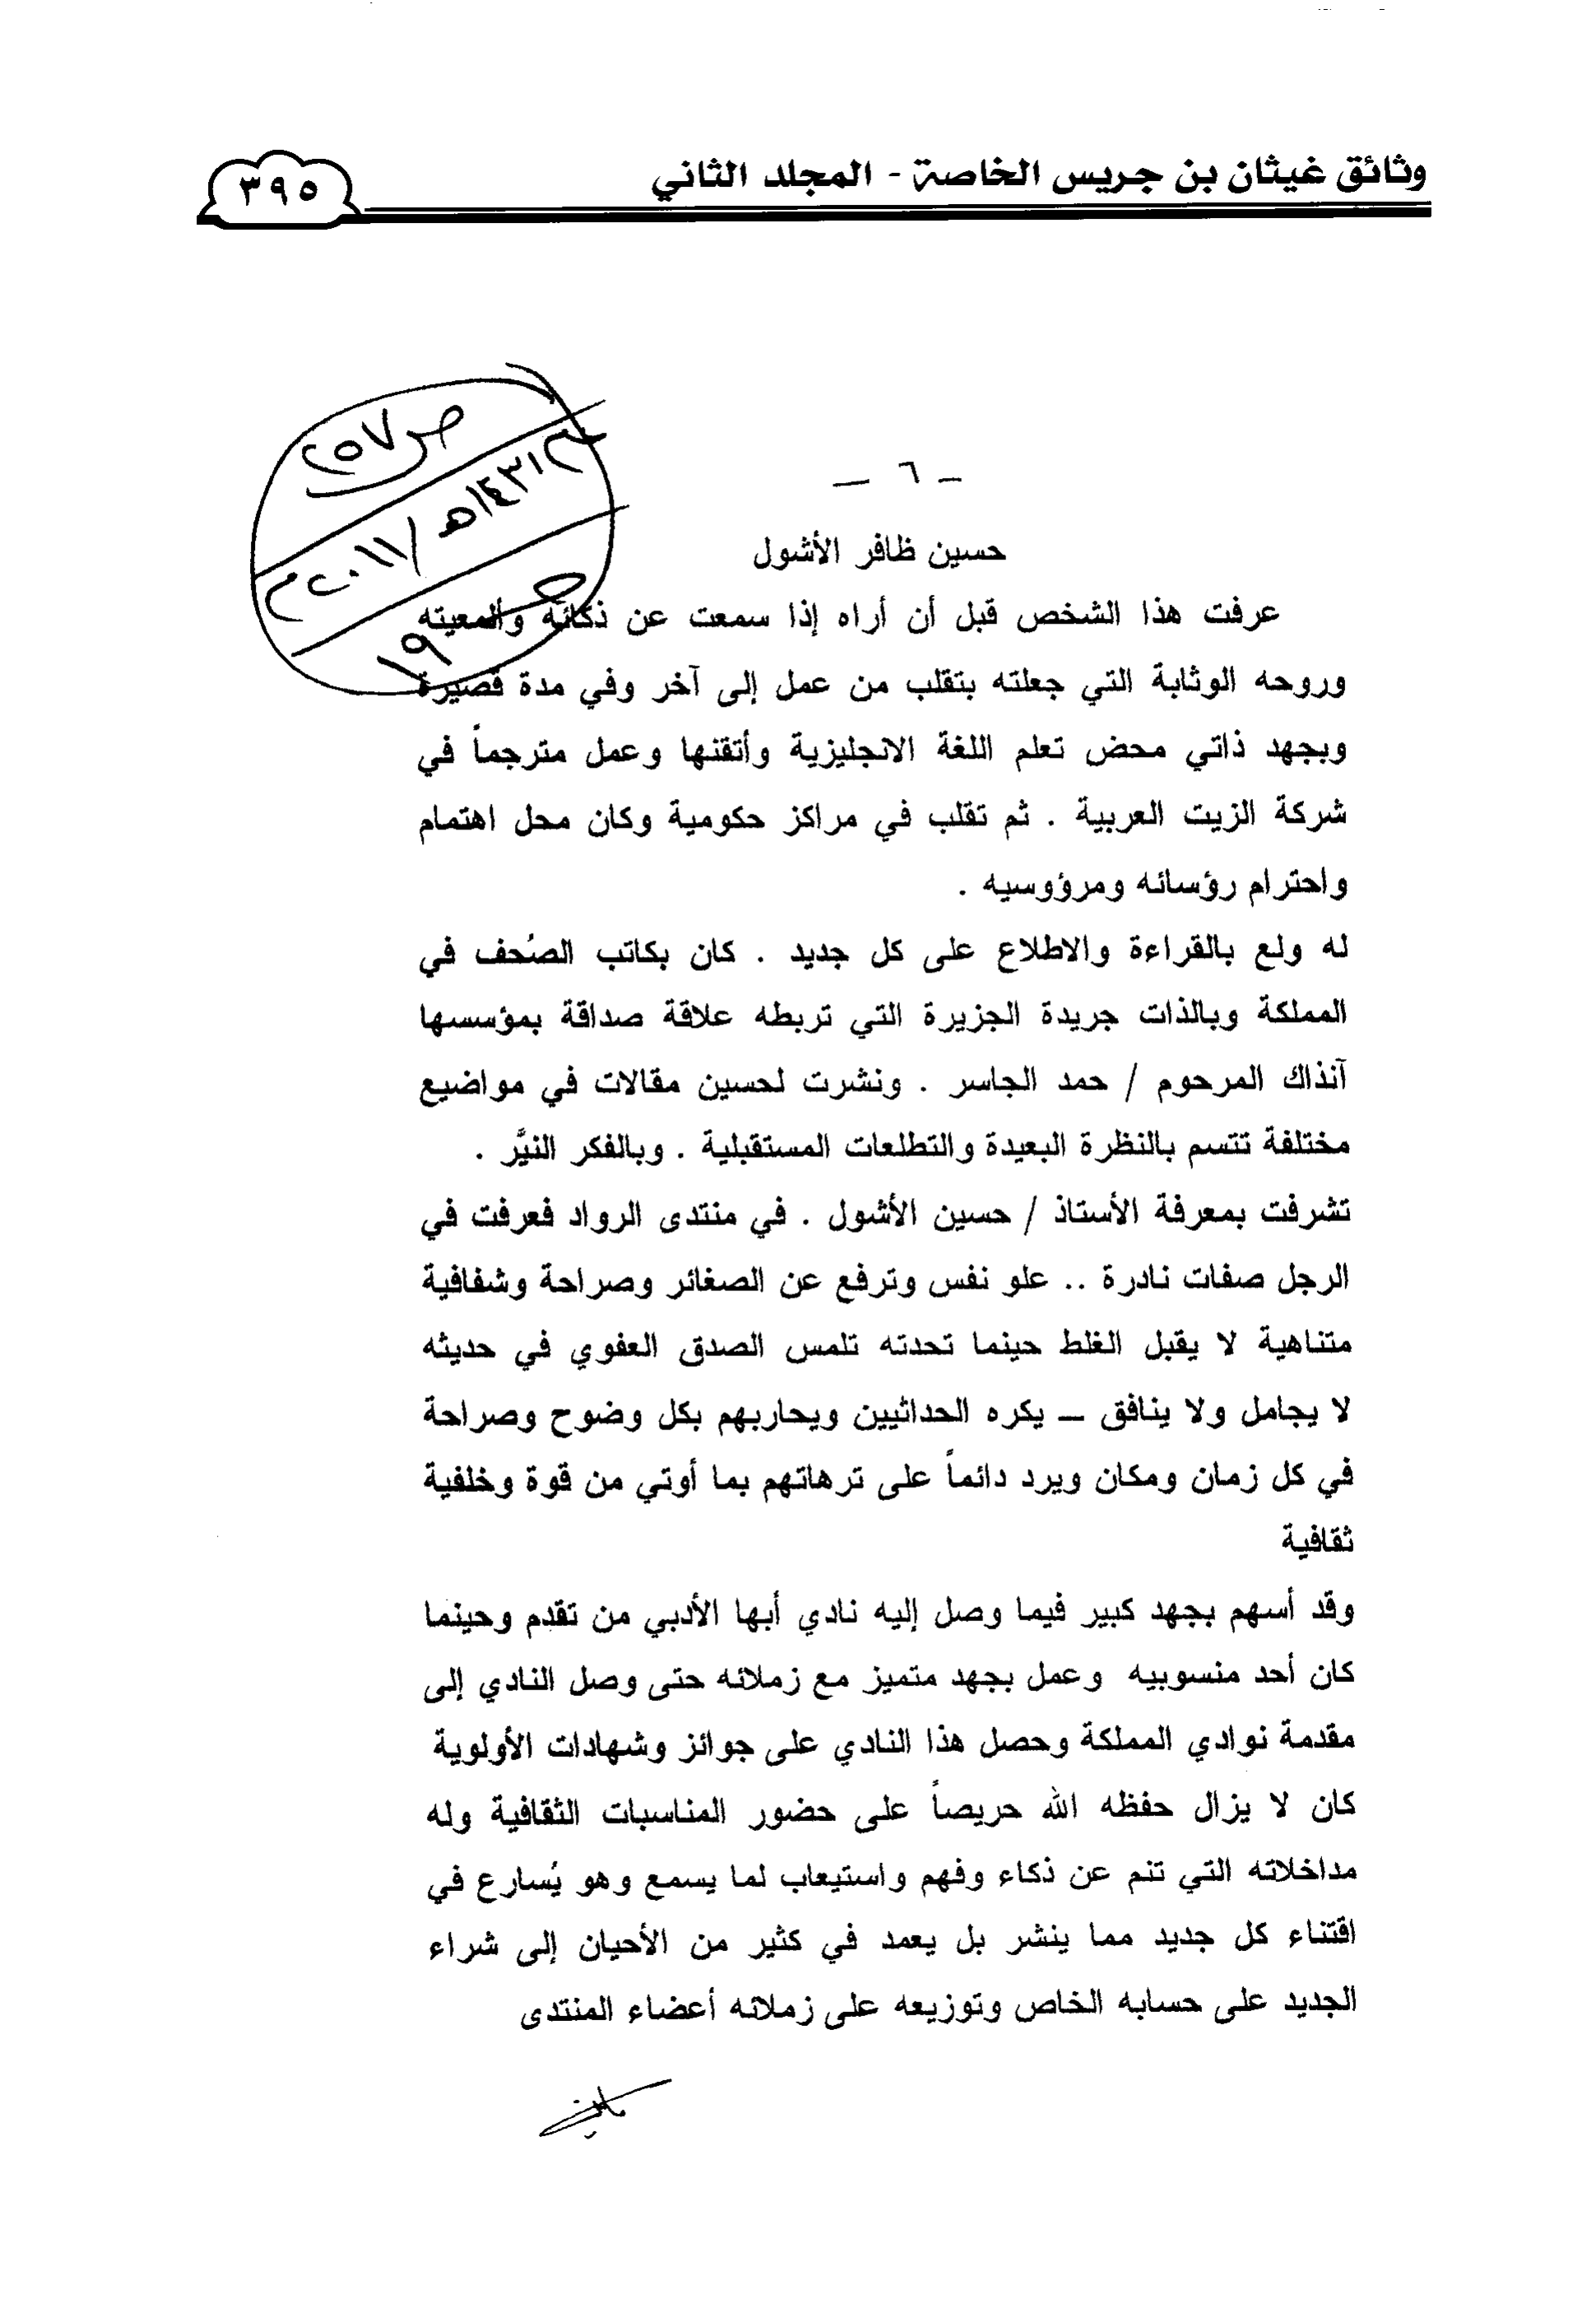 وثائق غيثان بن جريس الخاصة - المجلد الثاني
٣٩٥
ص ٢٥٧
١٤٣١هـ / ٢٠١١م
١٩
– ٦ –
حسين ظافر الأشول
عرفت هذا الشخص قبل أن أراه إذا سمعت عن ذكائه وألمعيته
وروحه الوثابة التي جعلته بتقلب من عمل إلى آخر وفي مدة قصيرة
وبجهد ذاتي محض تعلم اللغة الانجليزية وأتقنها وعمل مترجماً في
شركة الزيت العربية . ثم تقلب في مراكز حكومية وكان محل اهتمام
واحترام رؤسائه ومرؤوسيه .
له ولع بالقراءة والاطلاع على كل جديد . كان بكاتب الصُحف في
المملكة وبالذات جريدة الجزيرة التي تربطه علاقة صداقة بمؤسسها
آنذاك المرحوم / حمد الجاسر . ونشرت لحسين مقالات في مواضيع
مختلفة تتسم بالنظرة البعيدة والتطلعات المستقبلية . وبالفكر النيَّر .
تشرفت بمعرفة الأستاذ / حسين الأشول . في منتدى الرواد فعرفت في
الرجل صفات نادرة .. علو نفس وترفع عن الصغائر وصراحة وشفافية
متناهية لا يقبل الغلط حينما تحدته تلمس الصدق العفوي في حديثه
لا يجامل ولا ينافق – يكره الحداثيين ويحاربهم بكل وضوح وصراحة
في كل زمان ومكان ويرد دائماً على ترهاتهم بما أوتي من قوة وخلفية
ثقافية
وقد أسهم بجهد كبير فيما وصل إليه نادي أبها الأدبي من تقدم وحينما
كان أحد منسوبيه وعمل بجهد متميز مع زملائه حتى وصل النادي إلى
مقدمة نوادي المملكة وحصل هذا النادي على جوائز وشهادات الأولوية
كان لا يزال حفظه الله حريصاً على حضور المناسبات الثقافية وله
مداخلاته التي تنم عن ذكاء وفهم واستيعاب لما يسمع وهو يُسارع في
اقتناء كل جديد مما ينشر بل يعمد في كثير من الأحيان إلى شراء
الجديد على حسابه الخاص وتوزيعه على زملائه أعضاء المنتدى